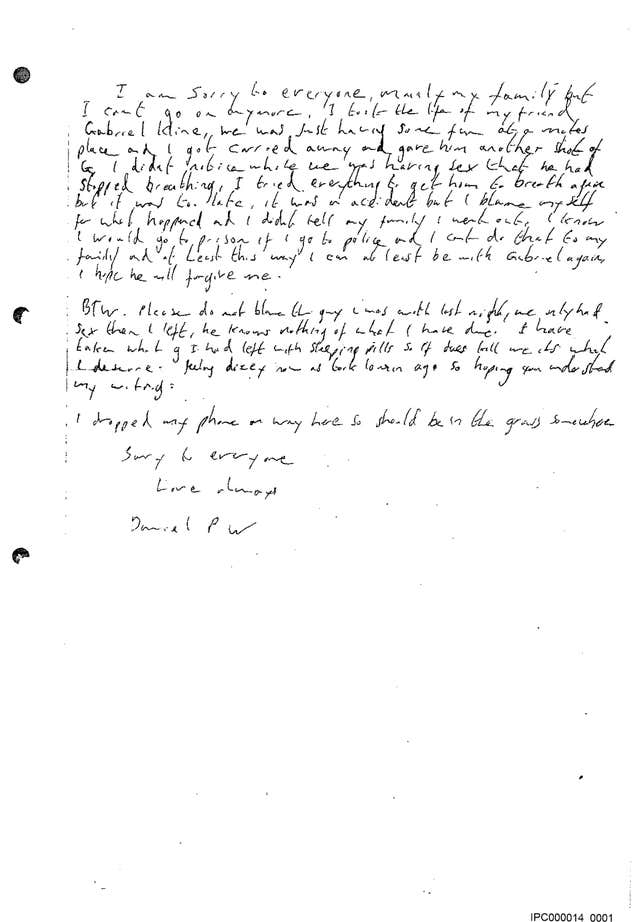 I am Sorry to everyone, mainly my family but
I cant go on anymore, I took the life of my friend
Gabriel Kline, we was just having some fun at a mates
place and I got carried away and gave him another shot of
G, I didnt notice while we was having sex that he had
Stopped breathing, I tried everything to get him to breath again
but it was to late, it was an accident but I blame myself
for what happened and I didnt tell my family I went out. I know
I would go to prison if I go to police and I cant do that to my
family and at least this way I can at least be with Gabriel again,
I hope he will forgive me.
BTW. Please do not blame the guy I was with last night, we only had
sex then I left, he knows nothing of what I have done. I have
taken what g I had left with sleeping pills so if it does kill me its what
I deserve. Feeling dizzy now as took 10 min ago so hoping you understand
my writing.
I dropped my phone on way here so should be in the grass somewhere
Sorry to everyone
Love always
Daniel P W
IPC000014_0001